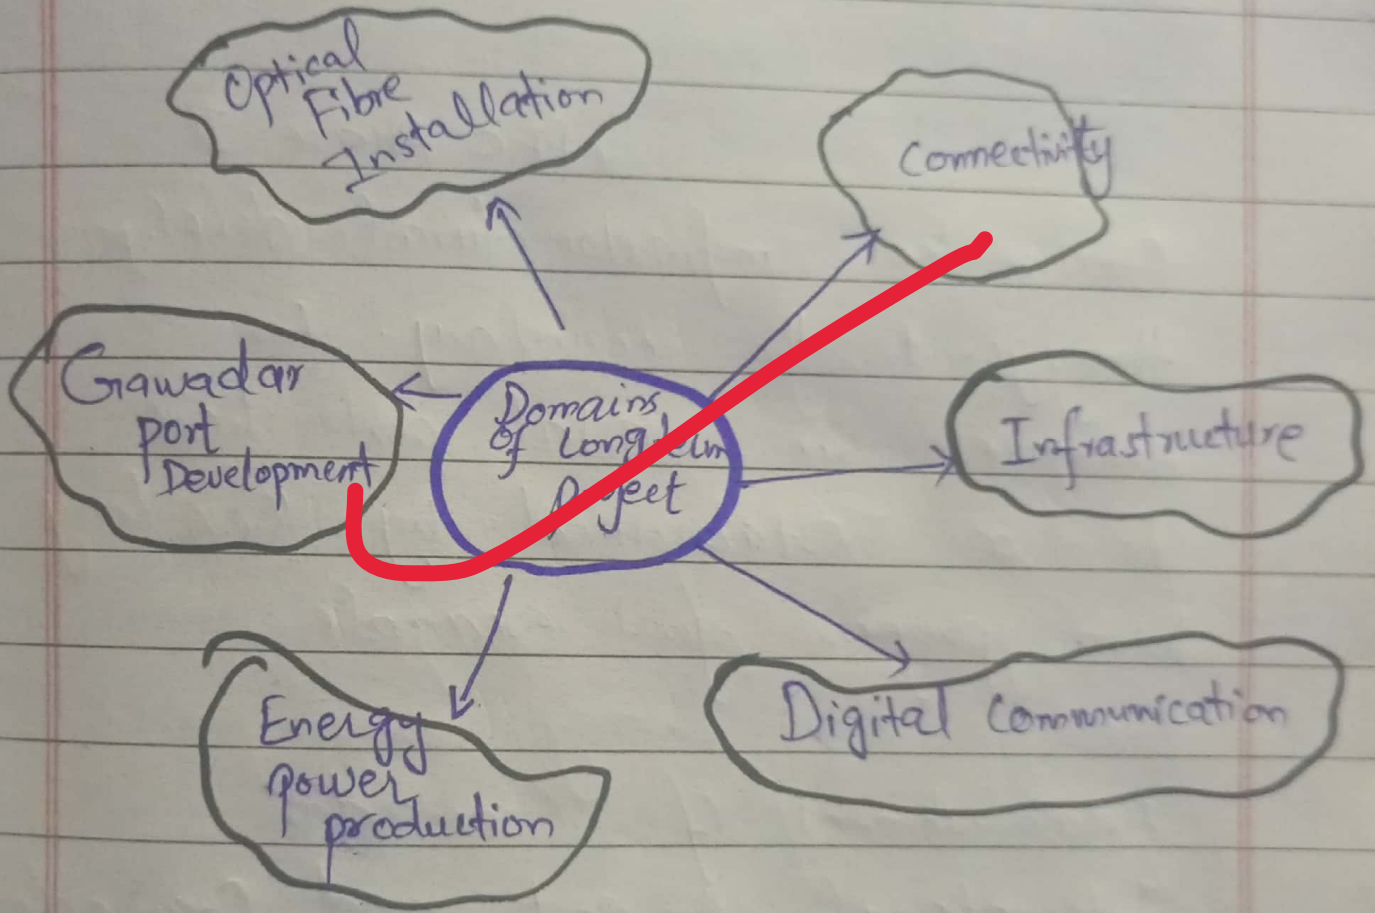 Optical
Fibre
Installation
Connectivity
Gawadar
port
Development
Domains
Of Long term
Project
Infrastructure
Energy
power
production
Digital Communication